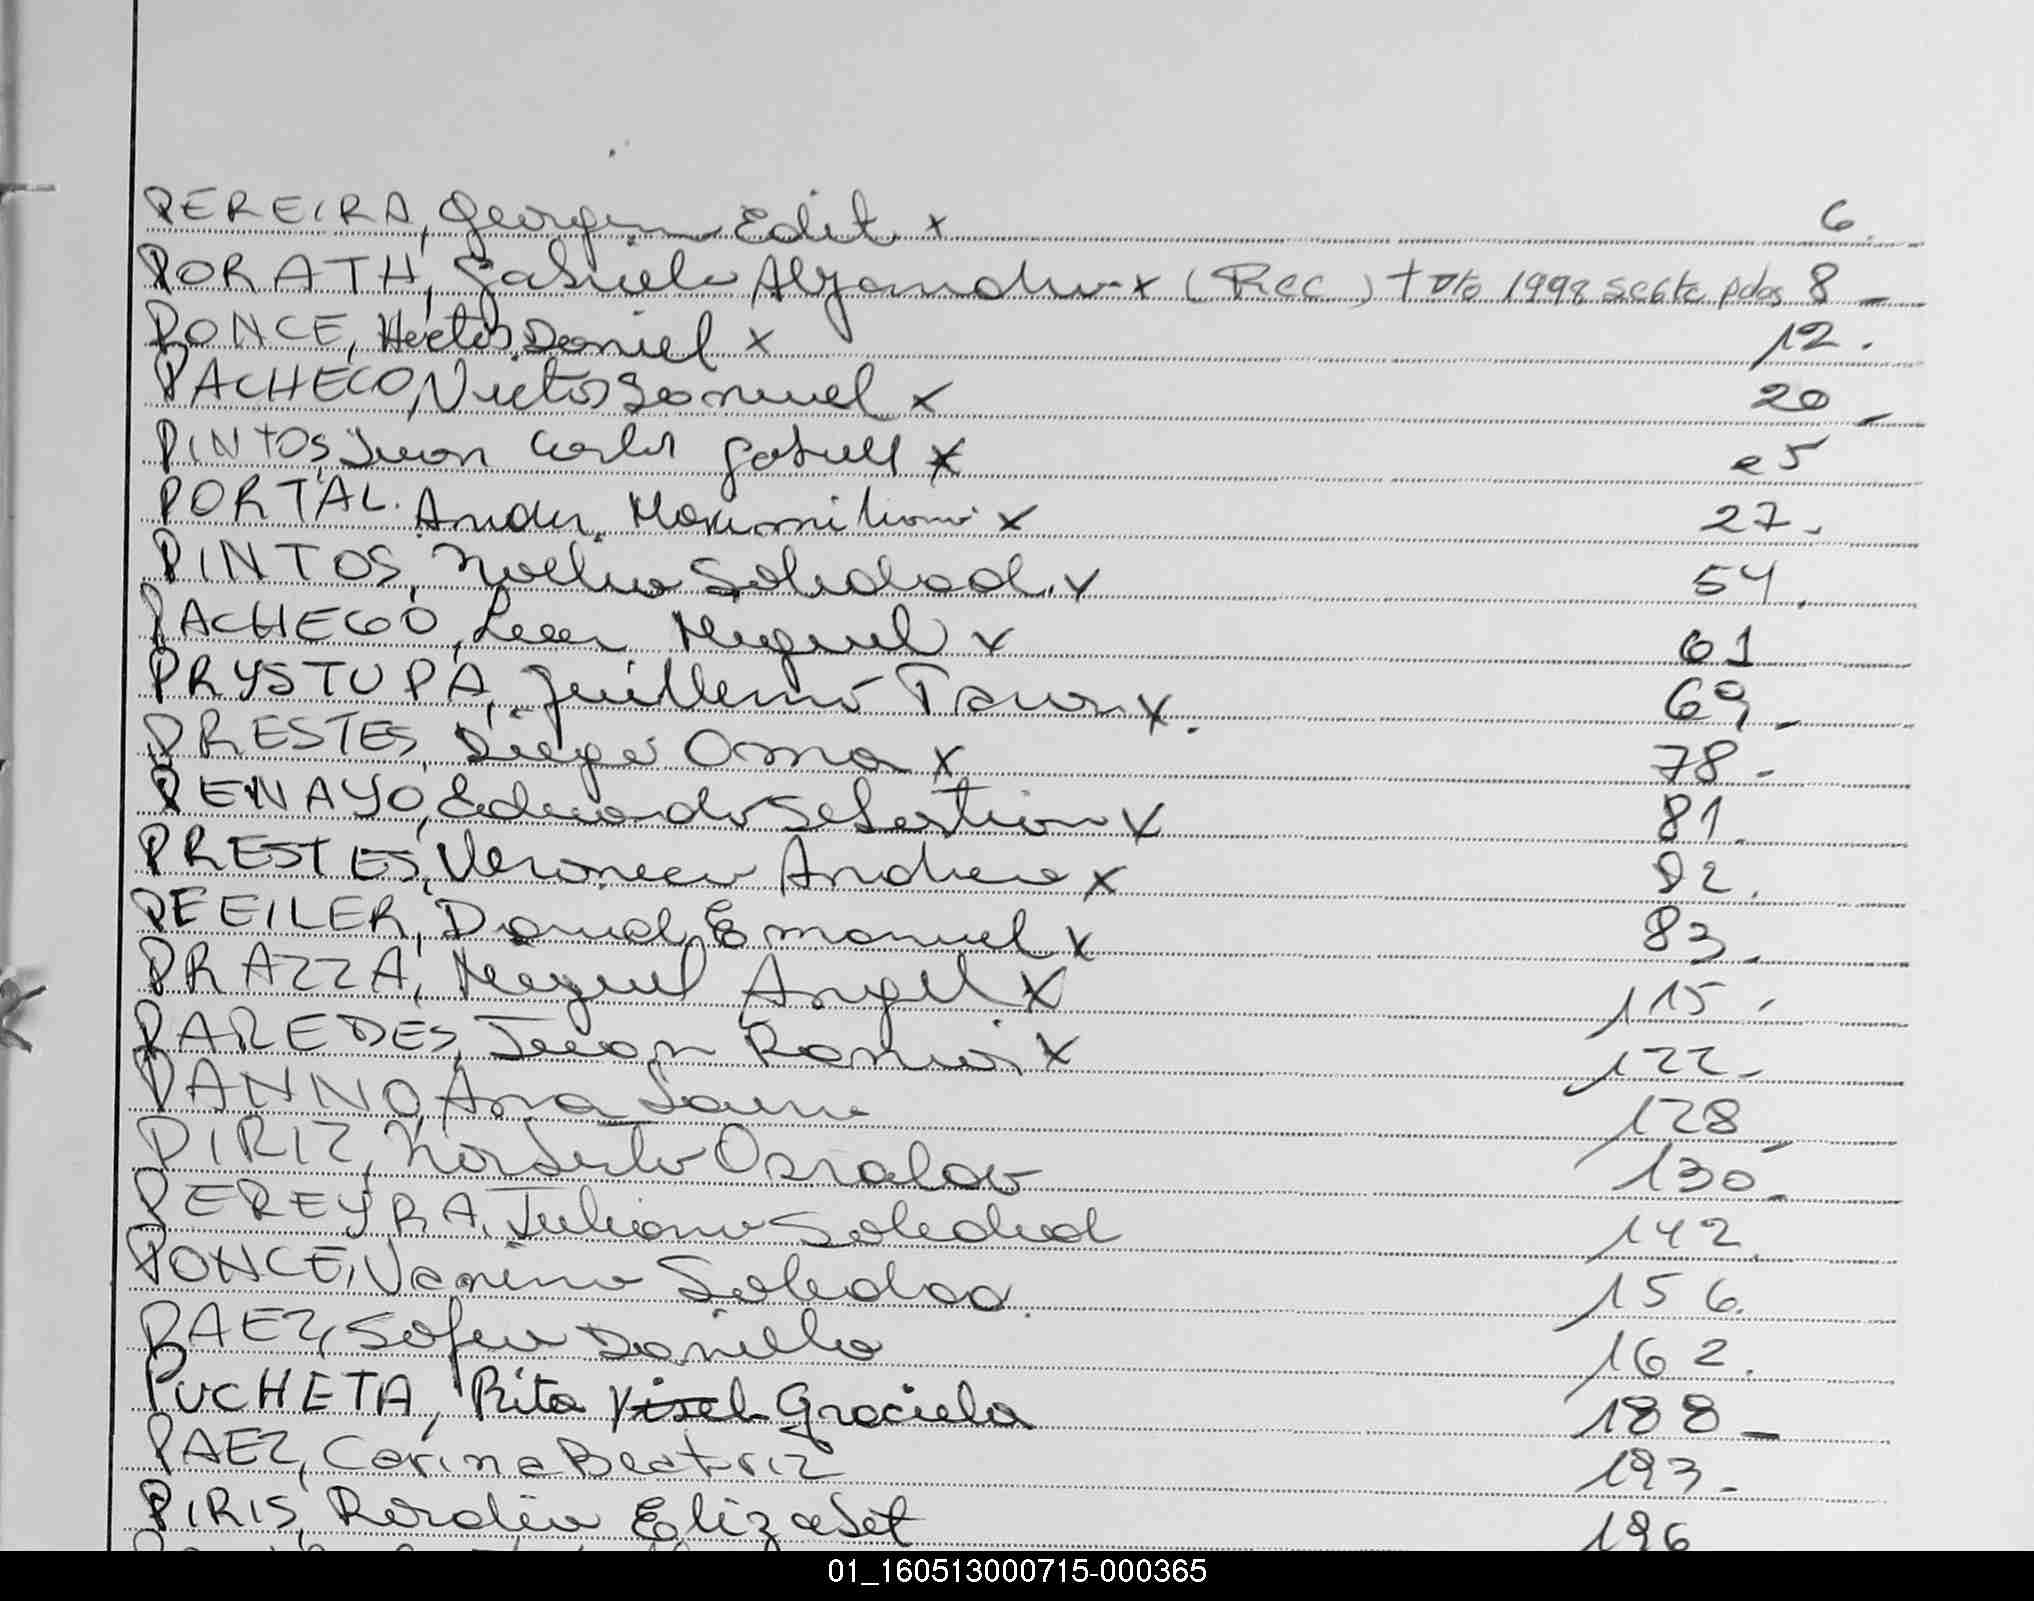 PEREIRA, Georgina Edit x 6.
PORATH, Gabriela Alejandra x (Rec) 1998 8 -
PONCE, Hector Daniel x 12.
PACHECO, Victor Samuel x 20 -
PINTOS, Juan Carlos Gabriel x 25
PORTAL. Andres Maximiliano x 27.
PINTOS, Noelia Soledad. x 54.
PACHECO, Luis Miguel x 61
PRYSTUPA, Guillermo x. 69 -
PRESTES, Diego Omar x 78 -
PENAYO, Eduardo Sebastian x 81.
PRESTES, Veronica Andrea x 82.
PFEILER, Daniel Emanuel x 83 -
PRAZZA, Miguel Angel x 115 -
PAREDES, Juan Ramon x 122 -
PANNO, Ana Laura 128
PIRIZ, Norberto Osvaldo 130 -
PEREYRA, Juliana Soledad 142.
PONCE, Vanina Soledad. 156.
PAEZ, Sofia Daniella 162.
PUCHETA, Rita Graciela 188 -
PAEZ, Carina Beatriz 193 -
PIRIS, Elizabet 196
01_160513000715-000365